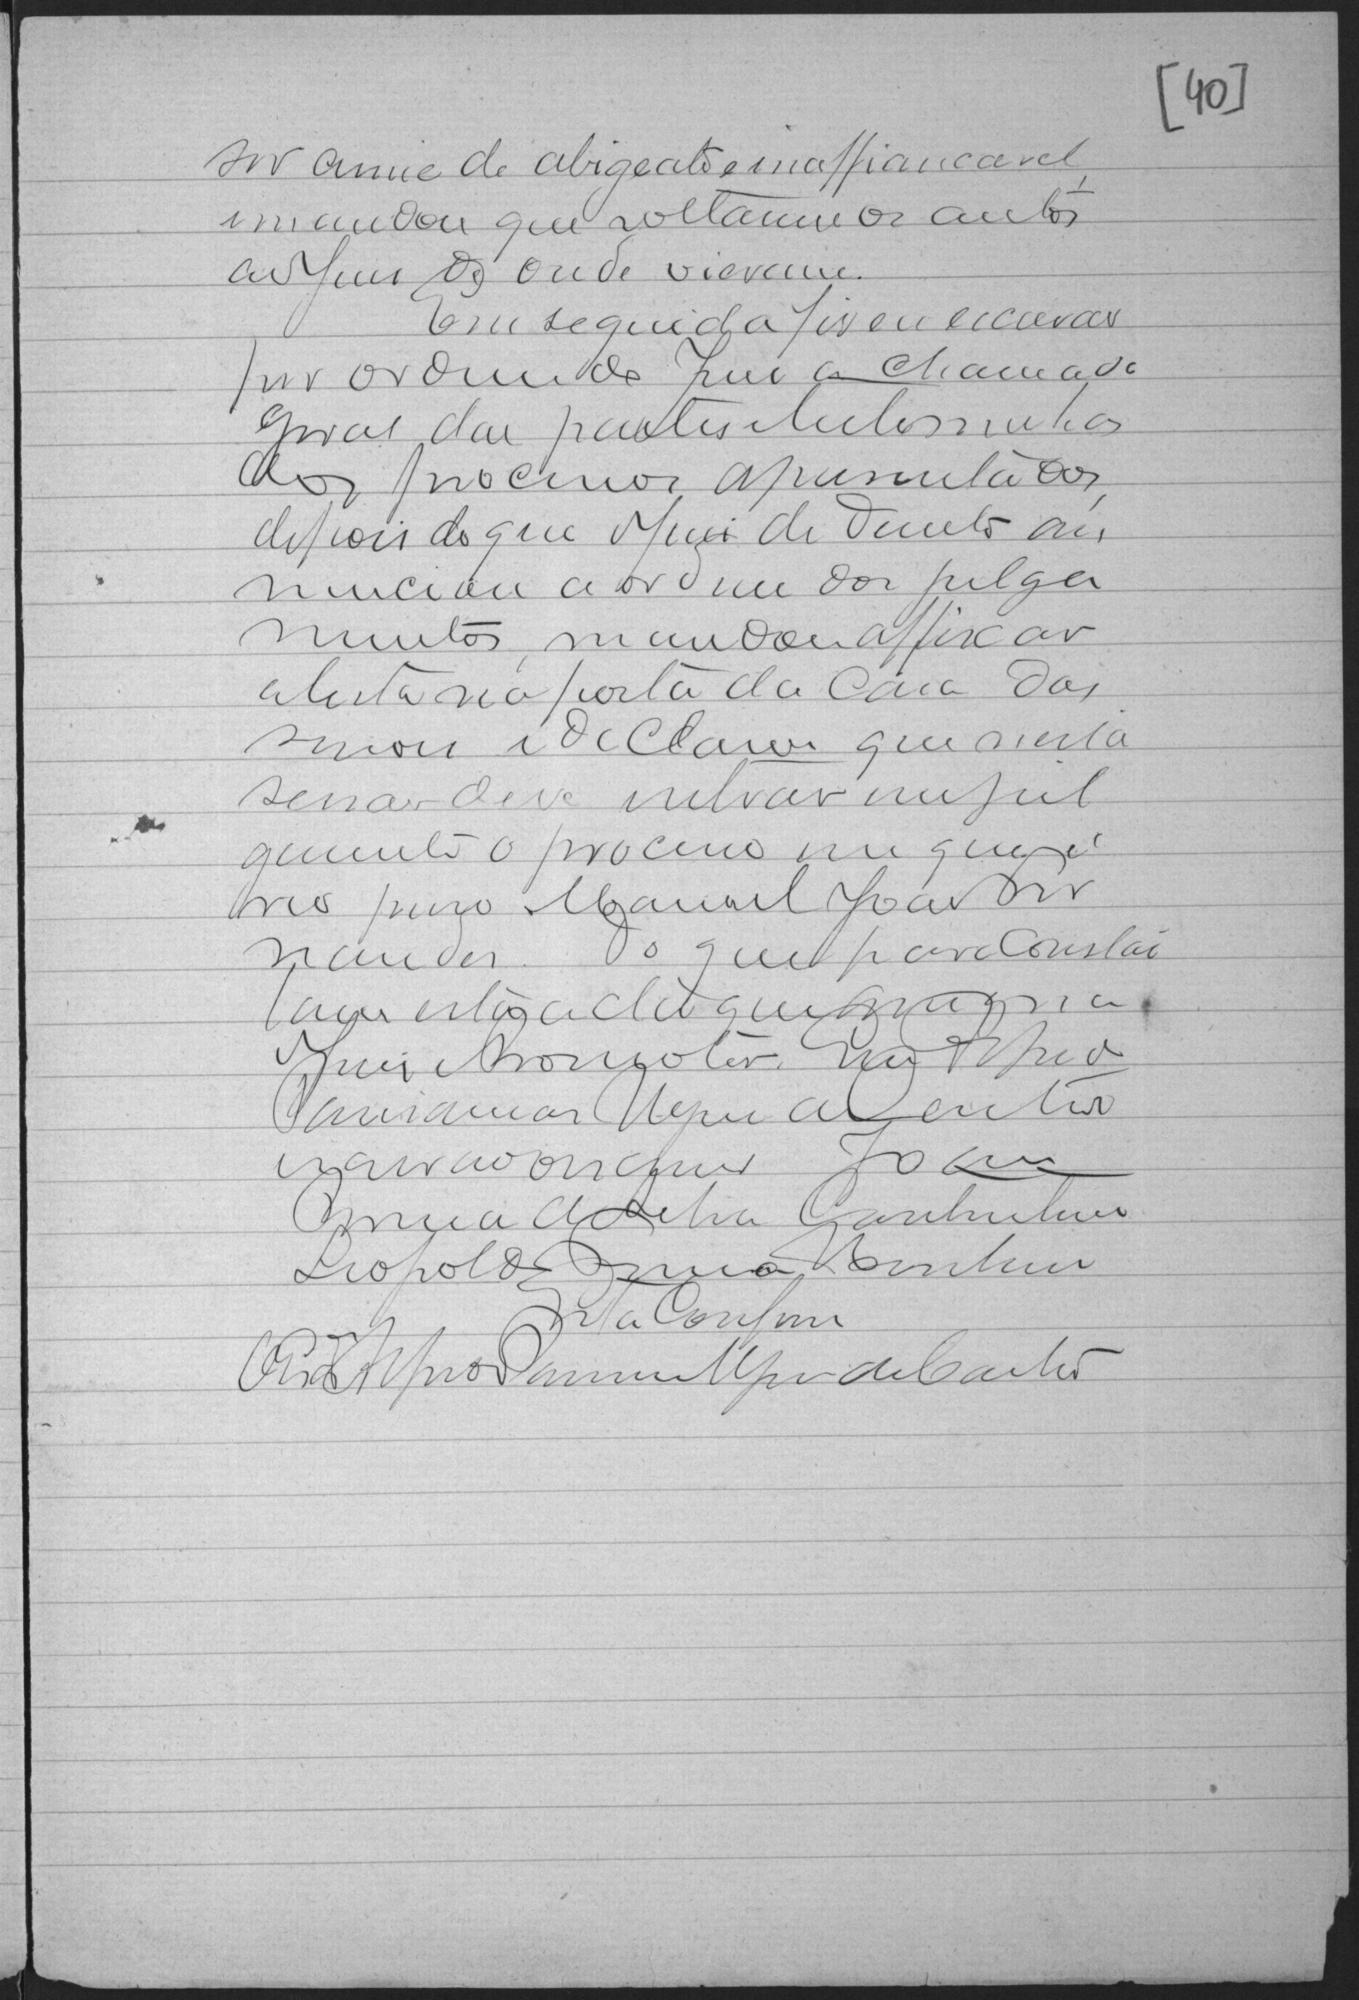 [40]
ser crime de abigeato e inaffiancavel,
mandou que voltassem os autos
ao Juiz de onde vieram.
Em seguida fiz eu escrivão
por ordem do Juiz a chamada
geral das partes e testemunhas
dos processos apresentados,
depois do que o Juiz de Direito an,
nunciou a ordem dos julga
mentos, mandou affixar
a lista na porta da Casa das
sessões e declarou que nesta
sessão deve entrar em jul
gamento o processo em que é
réo prezo Manuel João Fer
nandes. Do que para constar
lavrei esta acta que assigna
o Juiz e Promotor. Eu Alfredo
de Castro
escrivão escrevi João
da Silva
Leopoldo
Está Conforme
Alfredo de Castro